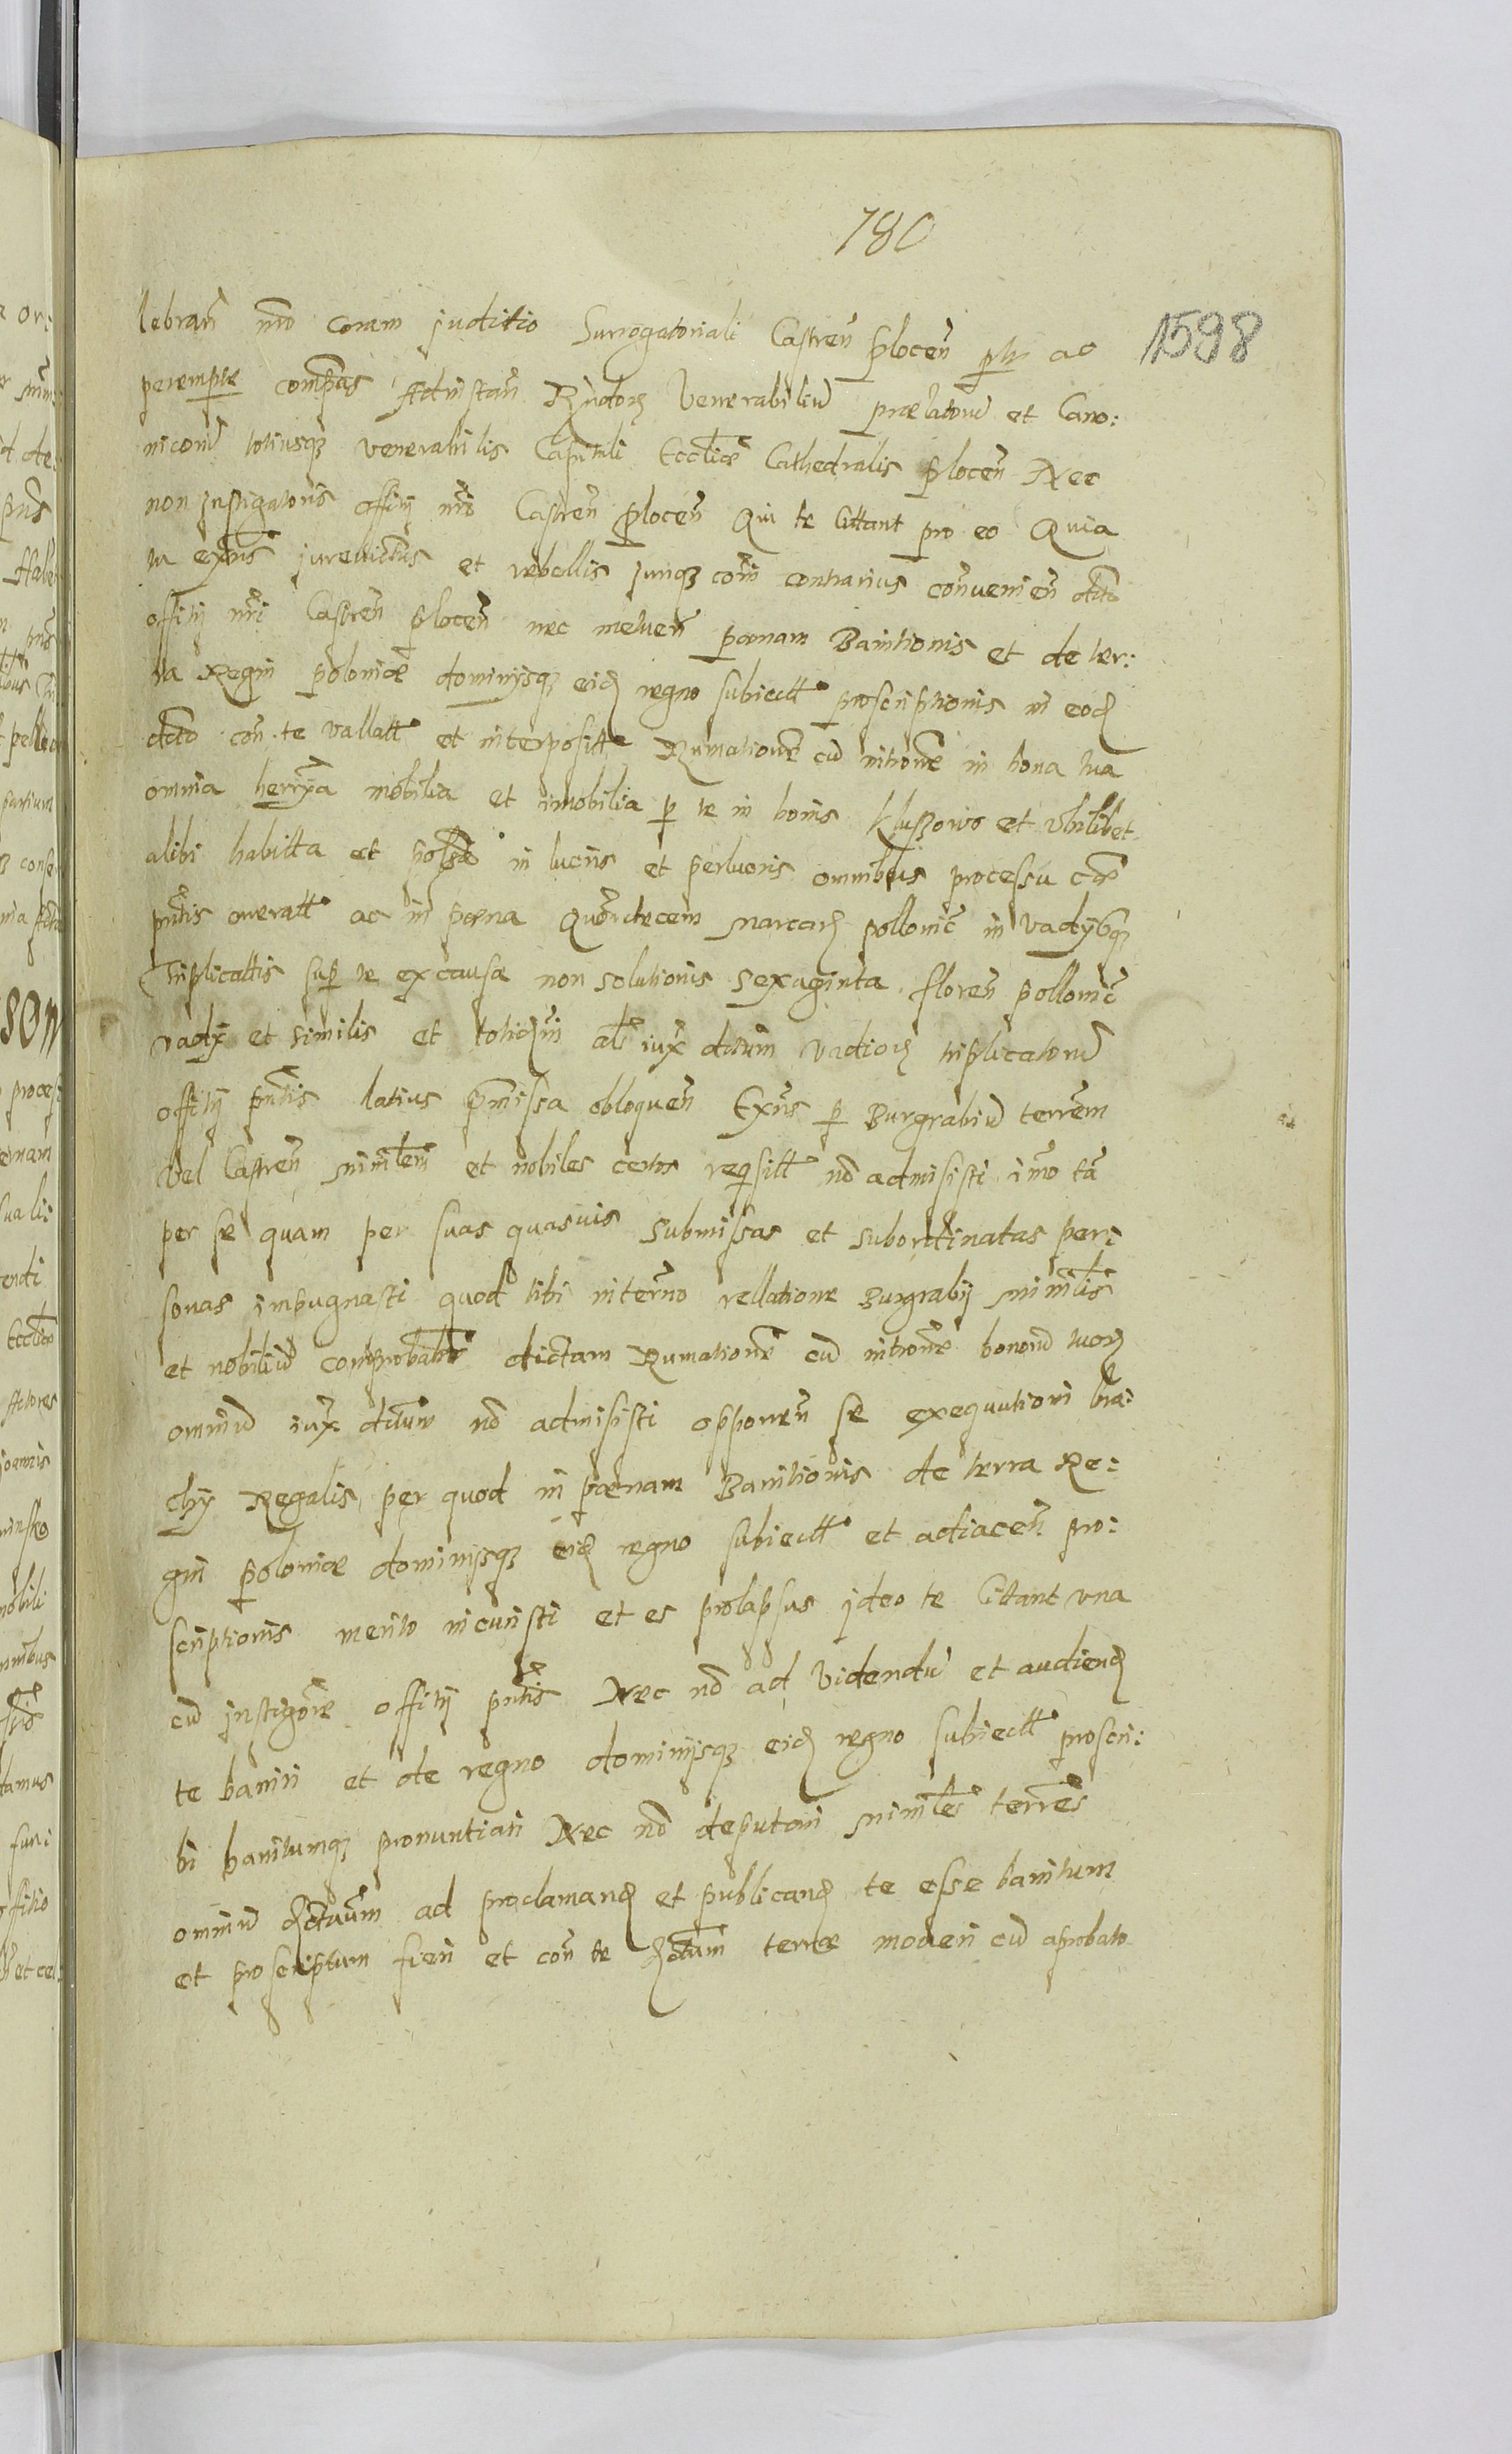 780
1598
lebrañ nr̃o coram juditio Surrogatoriali Castreñ Plocen̄ ptr̃ ac
perempt̃e compãs Adinstañ Rñdoꝝ Venerabiliũ prælatorũ et Cano:
nicorũ totiusqꝫ venerabilis Capituli Eccl̃iæ Cathedralis Plocen̄ Nec
non Instigatoris offitij nr̃i Castreñ Plocen̄ Qui te Cittant pro eo Quia
tu exñs jurevictus et rebellis Juriqꝫ com̃i contrarius conṽenien̄ dicto
offitij nr̃i Castreñ Plocen̄ nec metueñ pænam Banitionis et de ter:
ra Regni Poloniæ dominijsqꝫ eid̃ regno subiectt̃ proscriptionis in eod̃
dicto con̄ te vallatt̃ et interpositt̃ Rumationẽ cũ mitionẽ in bona tua
omnia herr̃ia mobilia et im̃obilia p te in bonis Kluszowo et Vbilibet
alibi habitta et poss̃a in lucris et perlucris omnibus processu
pñtis oneratt̃ ac in pæna Quatuordecem Marcaꝝ Pollonic̃ in Vadijsqꝫ
Triplicattis sup te ex causa non solutionis sexaginta floreñ Pollonic̃
vadij et similis et totid̃m al̃r iux̃ dictum vadioꝝ triplicatorũ
offitij pñtis latius præmissa obloqueñ Exñs p Burgrabiũ terreñm
vel Castreñ Min̄r̃lem et nobiles certos reqsitt̃ nõ admisisti imo tã
per se quam per suas quasuis submissas et subordinatas per:
sonas impugnasti quod tibi inter̃no rellatione Burgrabij Min̄r̃lis
et nobiliũ comprobabitur dictam Rumationẽ cũ mitionẽ bonorũ tuoꝝ
omniũ iux̃ dictum nõ admisisti opponeñ se exequutioni bra:
chij Regalis, per quod in pænam Banitionis de terra Re:
gni Poloniæ dominijsqꝫ eid̃ regno subiectt̃ et adiaceñ pro:
scriptionis merito incuristi et es prolapsus ideo te Cittant una
cũ Instigatorẽ offitij pñtis Nec nõ ad Videndũ et audiend̃
te baniri et de regno dominijsqꝫ eid̃ regno subiectt̃ proscri:
bi banitumqꝫ pronuntiari Nec nõ deputari Min̄r̃les terreş̃
omniũ ad proclamand̃ et publicand̃ te esse banitum
et proscriptum fieri et con̄ te terræ moueri cũ aprobato